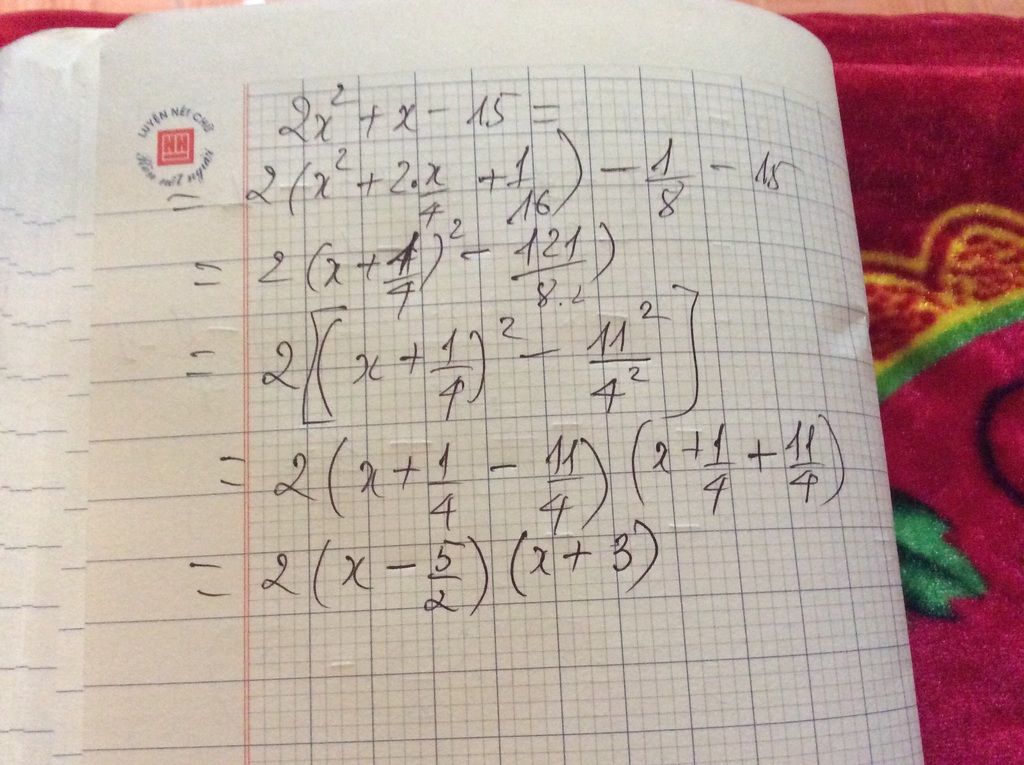 LUYỆN NÉT CHỮ
NH
Rèn nết người
2x² + x - 15 =
= 2(x² + 2.x/4 + 1/16) - 1/8 - 15
= 2(x + 1/4)² - 121/8.2)
= 2[(x + 1/4)² - 11²/4²]
= 2(x + 1/4 - 11/4)(x + 1/4 + 11/4)
= 2(x - 5/2)(x + 3)